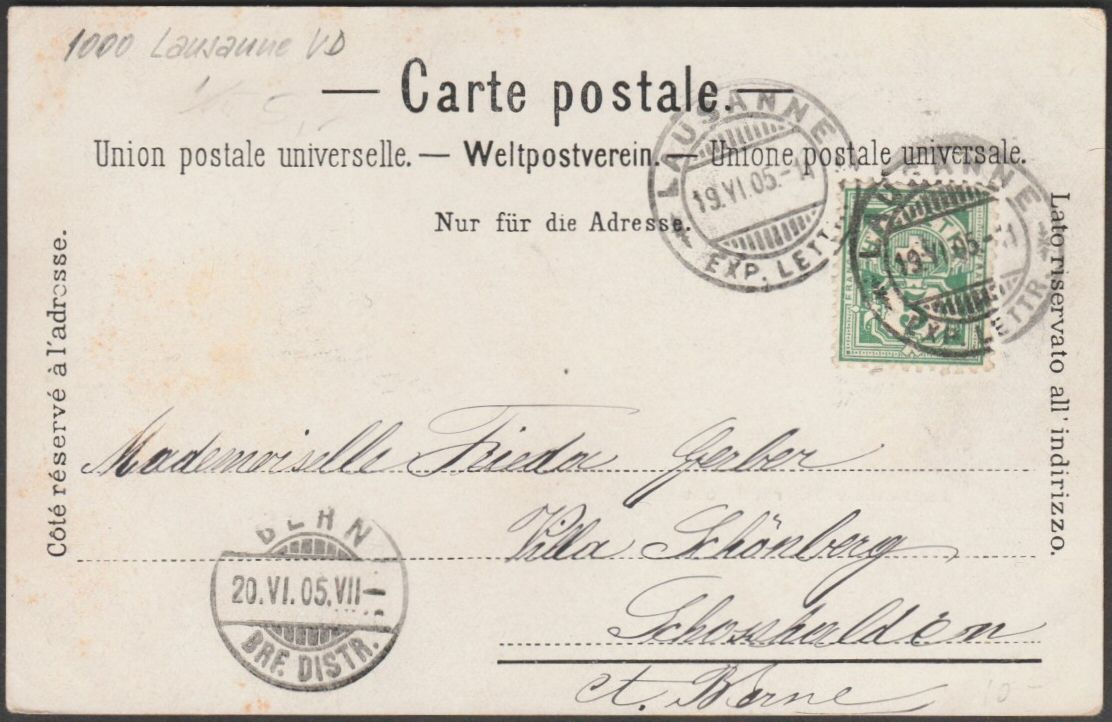 1000 Lausanne VD
— Carte postale. —
Union postale universelle. — Weltpostverein. — Unione postale universale.
Nur für die Adresse.
LAUSANNE
19.VI.05.-11
EXP. LETTR.
LAUSANNE
19.VI.05.-11
EXP. LETTR.
5
Côté réservé à l'adresse.
Lato riservato all'indirizzo.
Mademoiselle Frieda Gerber
Villa Schönberg
Schosshalden
Ct. Berne
BERN
20.VI.05.VII-
BRF. DISTR.
10-